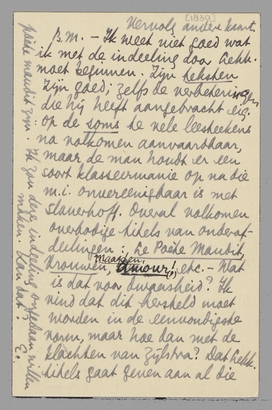 [1839]
Vervolg ander kant.
B.M. – Ik weet niet goed wat
ik met de indeeling door Lekk.
moet beginnen. Zijn teksten
zijn goed; zelfs de verbeteringen
die hij heeft aangebracht zijn
op de soms te vele leesteekens
na volkomen aanvaardbaar,
maar de man houdt er een
soort klasseermanie op na die
m.i. onvereenigbaar is met
Slauerhoff. Overal volkomen
overbodige titels van onderaf-
deelingen: Le Poète Maudit,
Vrouwen, Maskers, Amour! (?) etc. – Wat
is dat voor dwaasheid? Ik
vind dat dit hersteld moet
worden in de eenvoudigste
vorm, maar hoe dan met de
klachten van Zijlstra? dat Lekk.
titels gaat geven aan al die
poète maudit zijn. Ik zou deze indeeling ongedaan willen
maken. Kan dat? E.